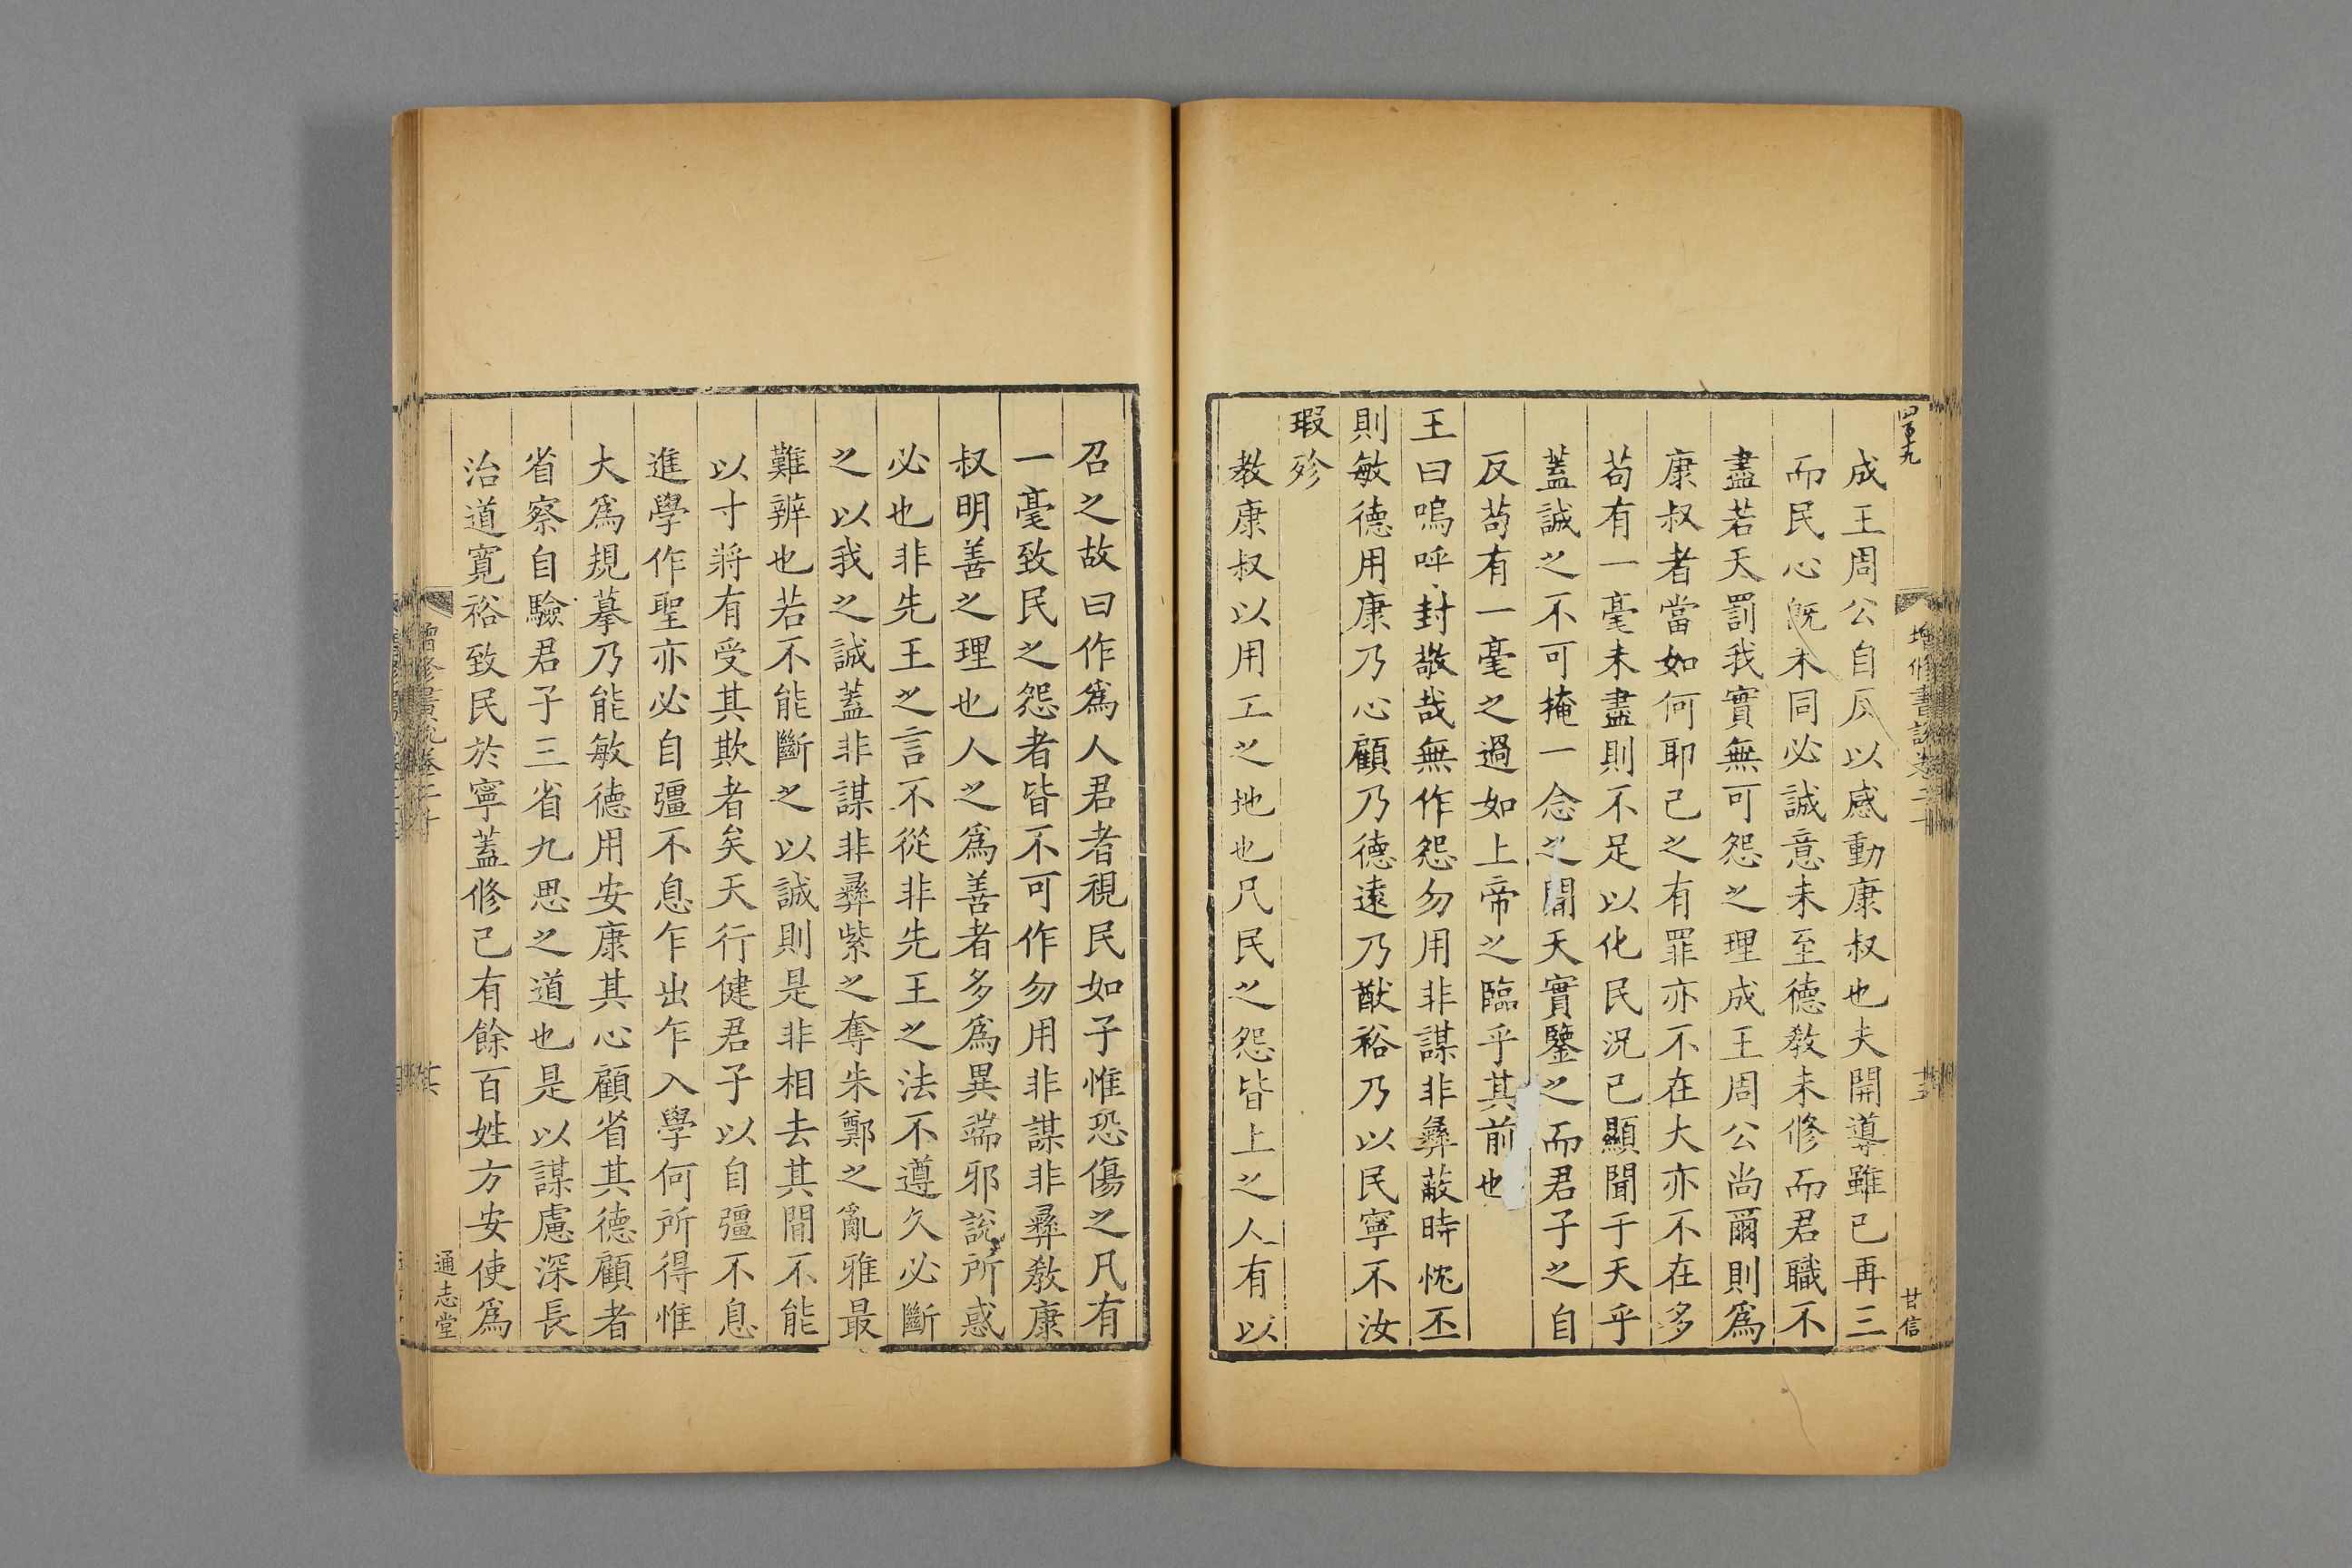 成王周公自反以感動康叔也夫開導雖已再三
而民心旣未同必誠意未至德敎未修而君職不
盡若天罰我實無可怨之理成王周公尚爾則爲
康叔者當如何耶己之有罪亦不在大亦不在多
苟有一毫未盡則不足以化民況已顯聞于天乎
蓋誠之不可掩一念之間天實鑒之而君子之自
反苟有一毫之過如上帝之臨乎其前也
王曰嗚呼封敬哉無作怨勿用非謀非彝蔽時忱丕
則敏德用康乃心顧乃德遠乃猷裕乃以民寧不汝
瑕殄
教康叔以用工之地也凡民之怨皆上之人有以
召之故曰作爲人君者視民如子惟恐傷之凡有
一毫致民之怨者皆不可作勿用非謀非彝敎康
叔明善之理也人之爲善者多爲異端邪說所惑
必也非先王之言不從非先王之法不遵久必斷
之以我之誠蓋非謀非彝紫之奪朱鄭之亂雅最
難辨也若不能斷之以誠則是非相去其間不能
以寸將有受其欺者矣天行健君子以自彊不息
進學作聖亦必自彊不息乍出乍入學何所得惟
大爲規摹乃能敏德用安康其心顧省其德顧者
省察自驗君子三省九思之道也是以謀慮深長
治道寬裕致民於寧蓋修己有餘百姓方安使爲
增修書說卷二十
甘信
通志堂